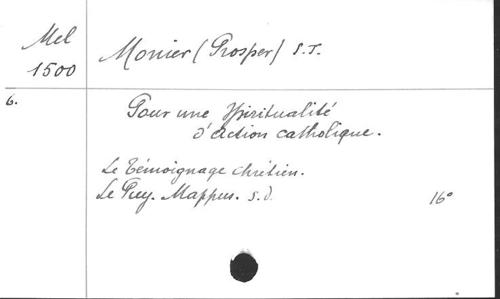 Mel
1500
Monier (Prosper) S.J.
6.
Pour une Spiritualité
d'action catholique.
Le Témoignage chrétien.
Le Puy. Mappus. s.d.
16°